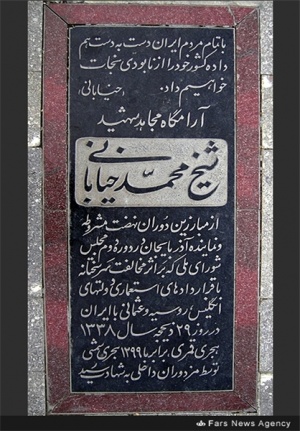 با تمام مردم ایران دست به دست هم
داده کشور خود را از نابودی نجات
خواهیم داد. «خیابانی»
آرامگاه مجاهد شهید
شیخ محمد خیابانی
از مبارزین دوران نهضت مشروطه
و نماینده آذربایجان در دوره دوم مجلس
شورای ملی که بر اثر مخالفت سرسختانه
با قراردادهای استعماری دولتهای
انگلیس روسیه و عثمانی با ایران
در روز ۲۹ ذیحجه سال ۱۳۳۸
هجری قمری برابر با ۱۲۹۹ هجری شمسی
توسط مزدوران داخلی به شهادت رسید
Fars News Agency